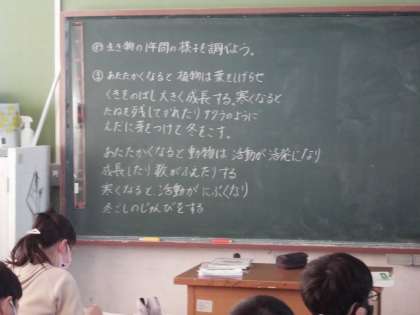 め 生き物の1年間の様子を調べよう。
ま あたたかくなると 植物は葉をしげらせ
くきをのばし大きく成長する。寒くなると
たねを残してかれたり サクラのように
えだに芽をつけて 冬をこす。
あたたかくなると動物は 活動が活発になり
成長したり数がふえたりする
寒くなると 活動が にぶくなり
冬ごしのじゅんびをする